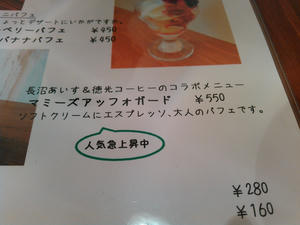 ニパフェ
ょっとデザートにいかがですか。
ベリーパフェ ¥450
バナナパフェ ¥450
長沼あいす&徳光コーヒーのコラボメニュー
マミーズアッフォガード ¥550
ソフトクリームにエスプレッソ、大人のパフェです。
人気急上昇中
¥280
¥160